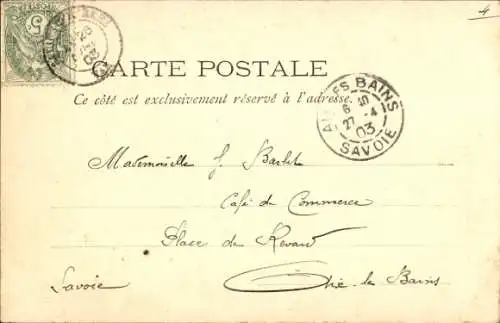 4
5
CARTE POSTALE
Ce côté est exclusivement réservé à l'adresse.
AIX-LES-BAINS
6 10
27 -4
03
SAVOIE
Mademoiselle J. Barlet
Café du Commerce
Place du Revard
Savoie Aix-les-Bains